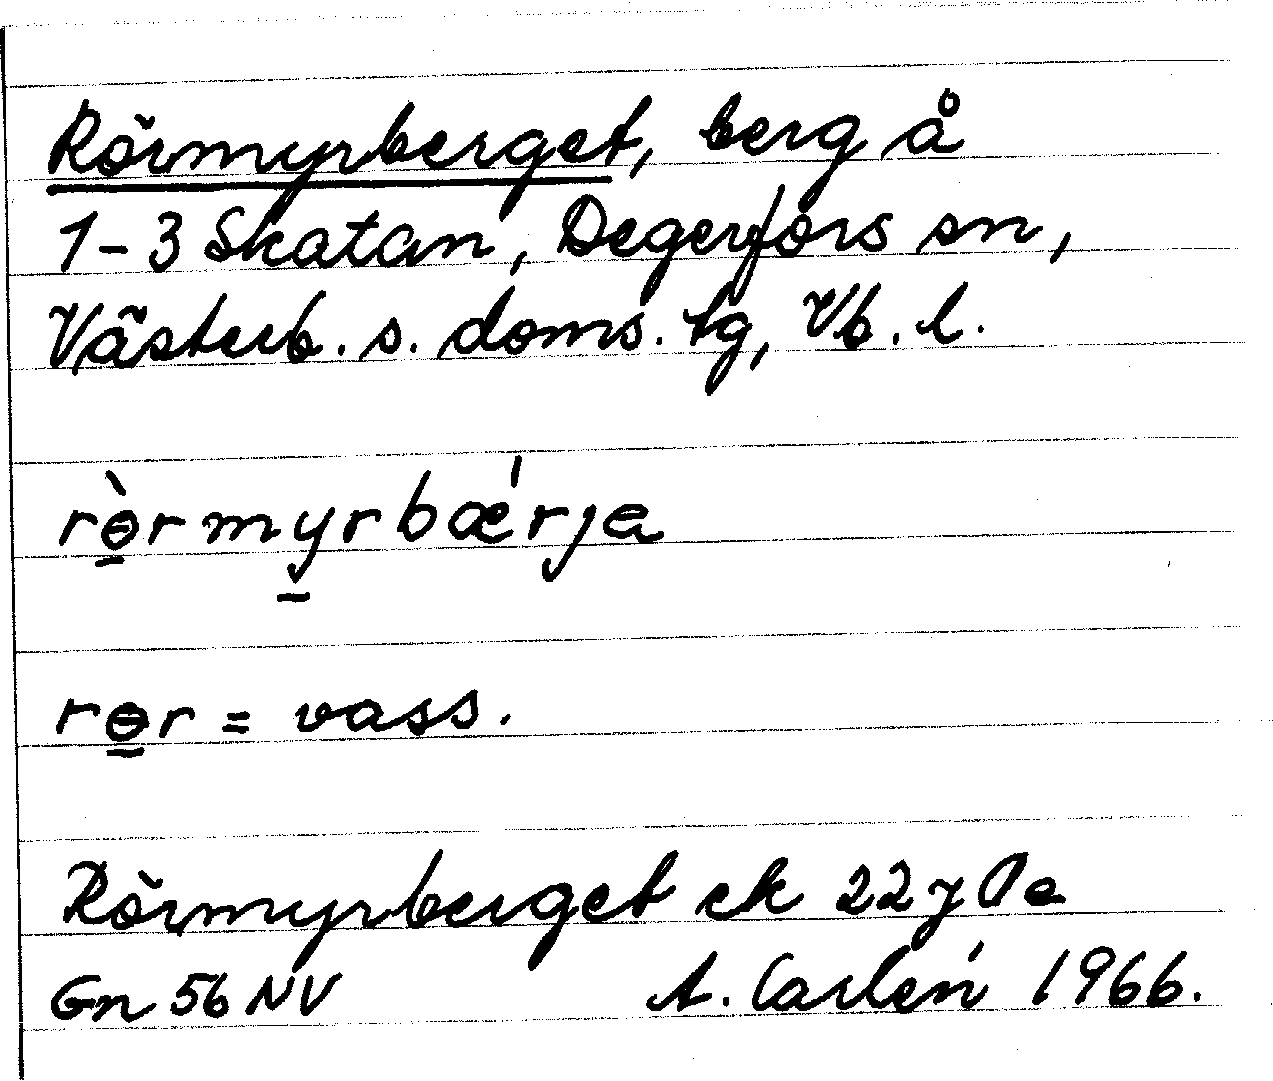 Rörmyrberget, berg å
1-3 Skatan, Degerfors sn,
Västerb. s. doms. tg, Vb. l.
rɵ̲̀rmy̲rbǽrjə
rɵ̲r = vass.
Rörmyrberget ek 22
Gn 56 NV A. Carlén 1966.